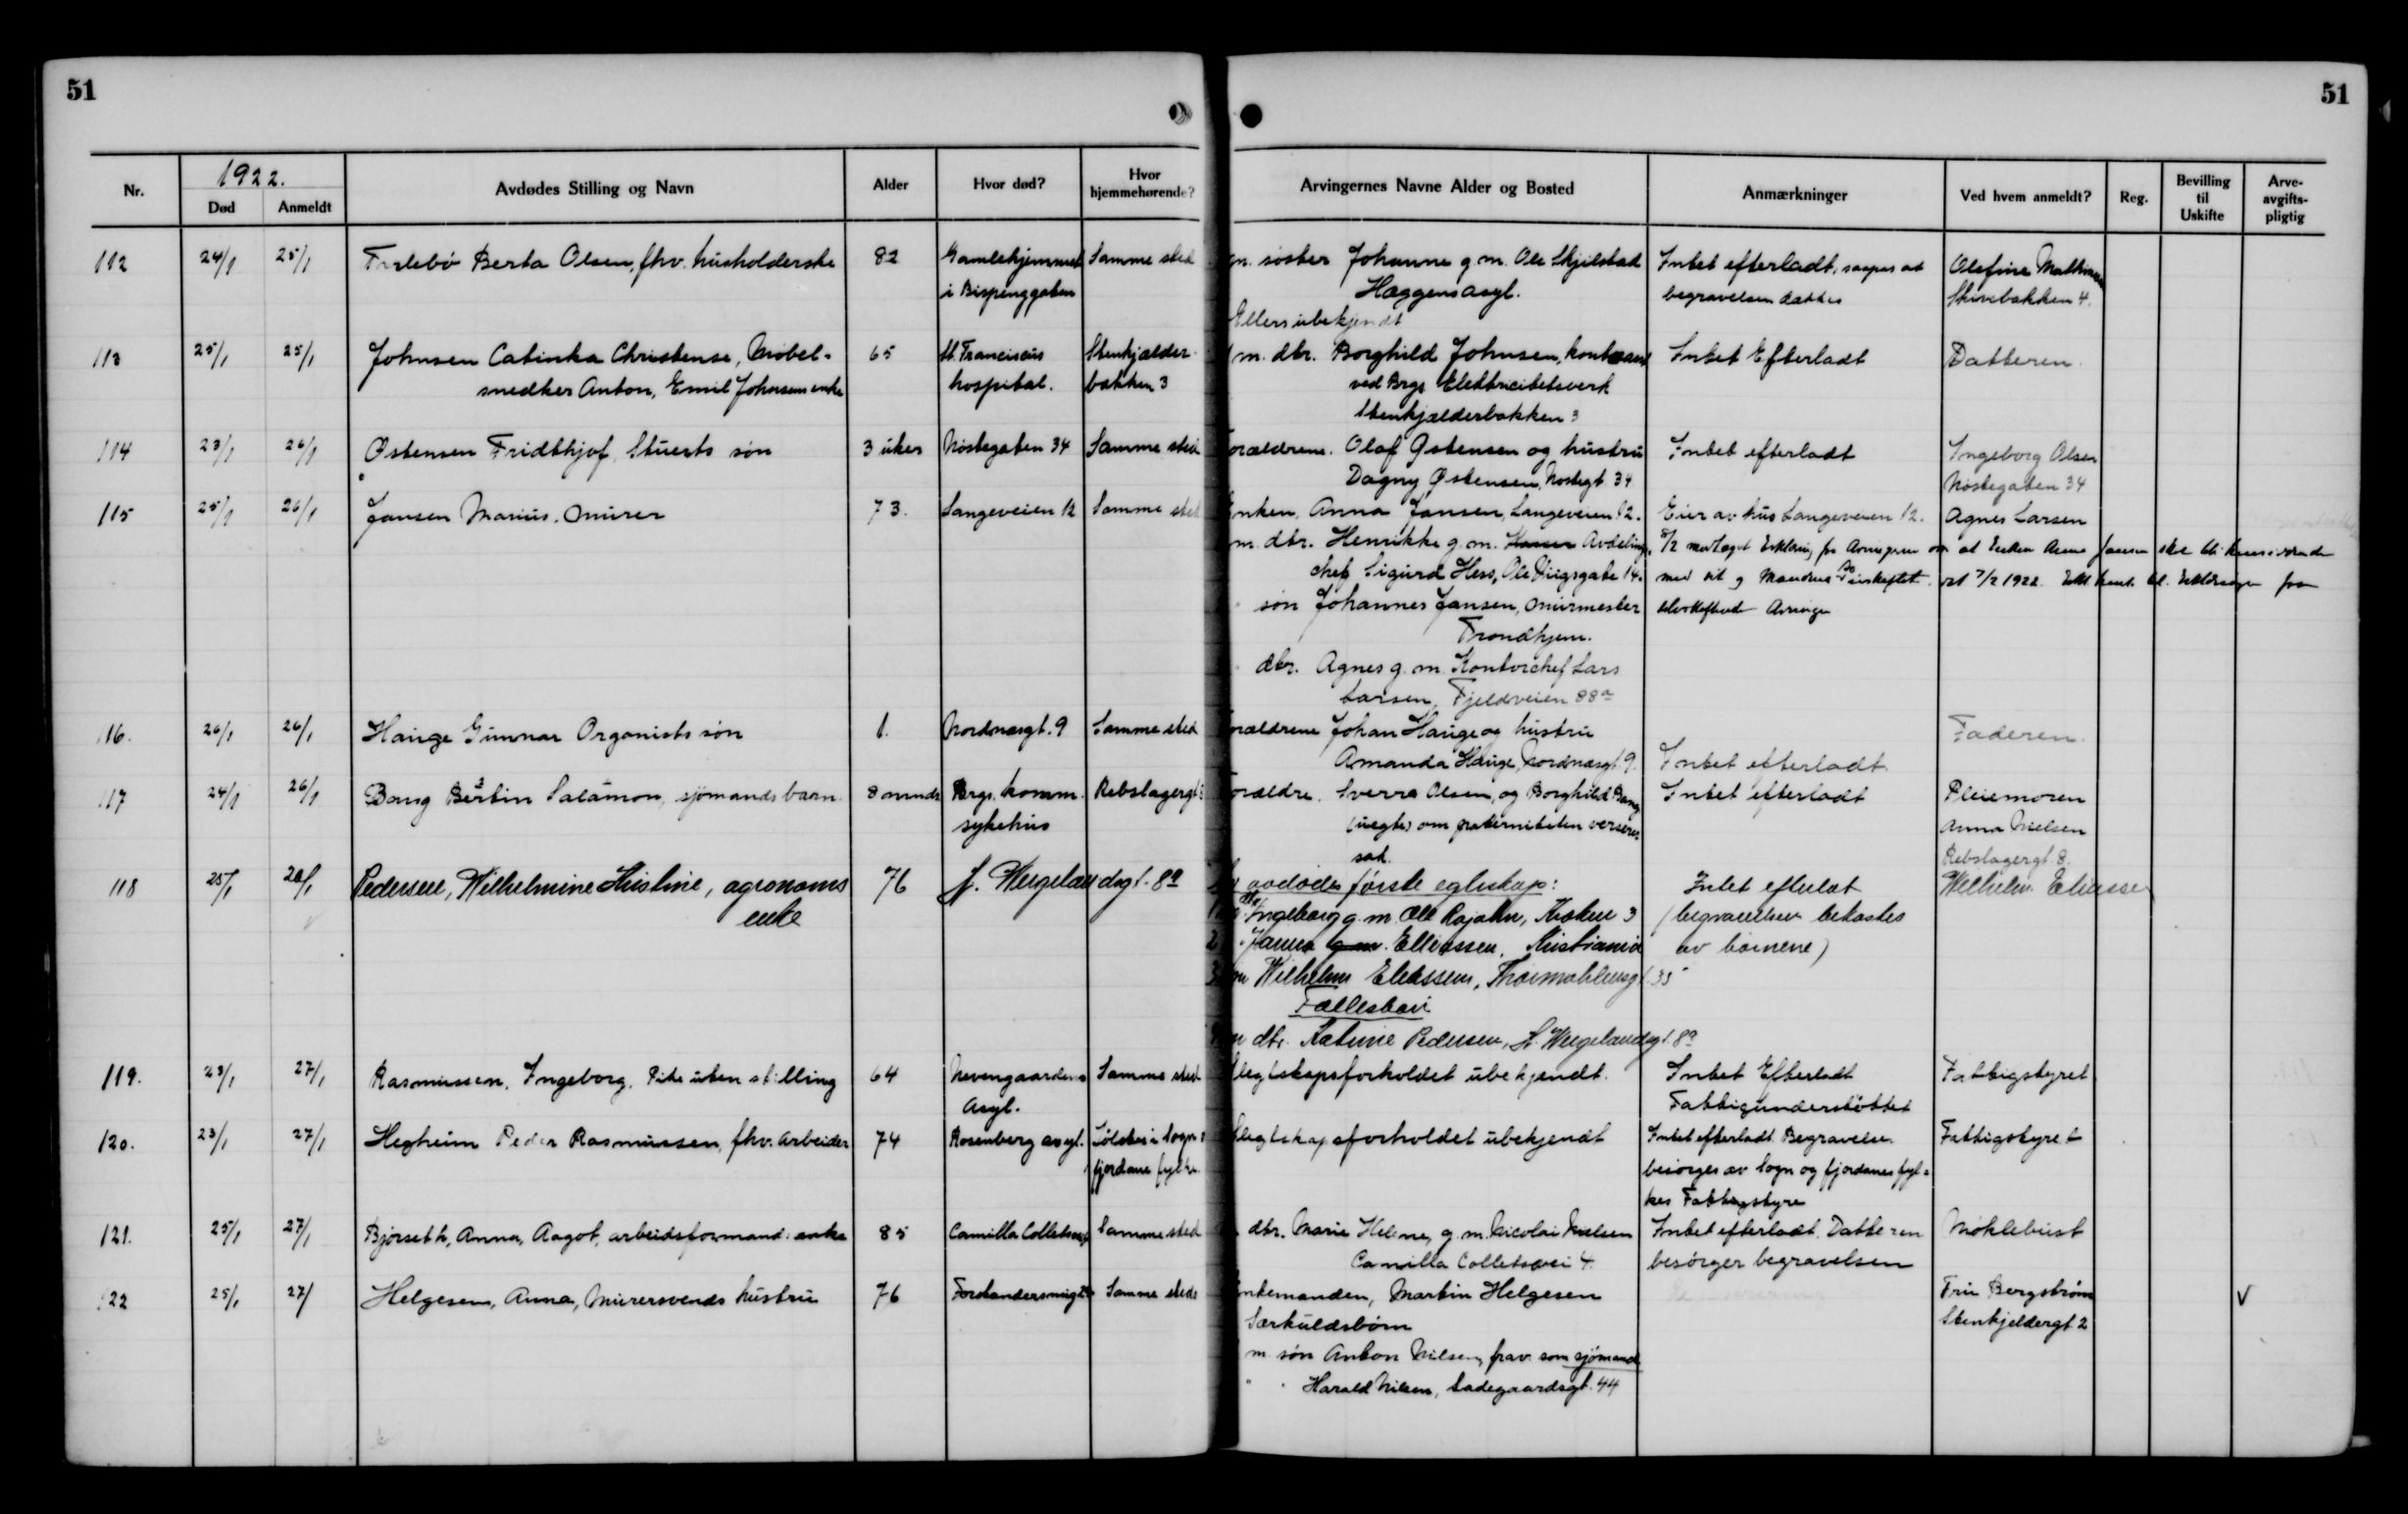 51
51
1922.
Nr.
Død
Anmeldt
Avdødes Stilling og Navn
Alder
Hvor død?
Hvor hjemmehørende?
Arvingernes Navne Alder og Bosted
Anmærkninger
Ved hvem anmeldt?
Reg.
Bevilling til Uskifte
Arve-avgifts-pligtig
112 24/1 25/1 Berta Olsen, fhv. husholderske 82 Gamlehjemmet Samme sted gn. søster Johanne g.m. Ole Skjilstad Intet efterladt, saapas at Olefine
i Bispenggaten Hæggens asyl. begravelsen dækkes Skivebakken 4.
Ellers ubekjendt
113 25/1 25/1 Johnsen Catinka Christense, Møbel- 65 St. Franciscus Stenkjælder- m. dtr. Borghild Johnsen, Intet Efterladt Datteren.
snedker Anton, Emil Johnsens enke hospital. bakken 3 ved Brgs Elektricitetsverk
Stenkjælderbakken 3
114 23/1 26/1 Østensen Fridthjof, Stuerts søn 3 uker Nøstegaten 34 Samme sted Forældrene. Olaf Østensen og hustru Intet efterladt Ingeborg Olsen
Dagny Østensen, Nøstegt 34 Nøstegaten 34
115 25/1 26/1 Jansen Marius. Murer 73. Langeveien 12 Samme sted Enken, Anna Jansen, Langeveien 12. Eier av hus Langeveien 12. Agnes Larsen
m. dtr. Henrikke g.m. Avdelings- 8/2 mottaget Erklæring fra Arvingerne om at Enken Anna Jansen skal bli
chef Sigurd Hess, Ole 14. med sit og Mandens 7/2 1922.
søn Johannes Jansen, Murmester
Trondhjem.
dtr. Agnes g.m. Kontorchef Lars
Larsen, Fjeldveien 88a
116. 26/1 26/1 Hauge Gunnar Organists søn 1. Nordnæsgt. 9 Samme sted Forældrene Johan Hauge og hustru Faderen.
Amanda Hauge, Nordnæsgt. 9. Intet efterladt
117 24/1 26/1 Bang Bertin Salamon, sjømands barn. 8 mndr Brgs. komm. Rebslagergt 8 Forældre. Sverre Olsen, og Borghild Bang Intet efterladt Pleiemoren
sykehus (uegte) om paterniteten verserer Anna Nielsen
sak. Rebslagergt. 8.
118 25/1 26/1 Pedersen, Wilhelmine Kristine, agronoms 76 H. Wergelandsgt. 8a Av avdødes første egteskap: Intet efterlat Wilhelm Eliassen
enke 1 Ingeborg g.m. Ole Rojahn, Kroken 3 (begravelsen bekostes
2 Elliassen, Kristiania av børnene)
3 Wilhelm Eliassen, Thormøhlensgt 35
Fællesbarn
dtr. Katrine Pedersen, H. Wergelandsgt. 8a
119. 23/1 27/1 Rasmussen, Ingeborg, Pike uten stilling 64 Nevengaardens Samme sted Slegtskapsforholdet ubekjendt. Intet Efterladt Fattigstyret
Asyl. Fattigunderstøttet
120. 23/1 27/1 Hegheim Peder Rasmussen, fhv. Arbeider 74 Rosenberg asyl. Jølster i Sogn & Slegtskapsforholdet ubekjendt Intet efterladt. Begravelsen Fattigstyret
fjordane fylke. besørges av Sogn og fjordanes fyl-
kes Fattigstyre
121. 25/1 27/1 Bjørseth, Anna, Aagot, arbeidsformands enke 85 Camilla Colletsvei Samme sted dtr. Marie Helene, g.m. Nicolai Nielsen Intet efterladt. Datteren Møklebust
Camilla Colletsvei 4. besørger begravelsen
122 25/1 27/ Helgesen, Anna, Murersvends hustru 76 Forstandersmuget Samme sted Enkemanden, Martin Helgesen Fru Bergstrøm V
Særkuldsbørn Stenkjeldergt. 2
m. søn Anton Nilsen, frav. som sjømand
" " Harald Nilsen, Ladegaardsgt. 44